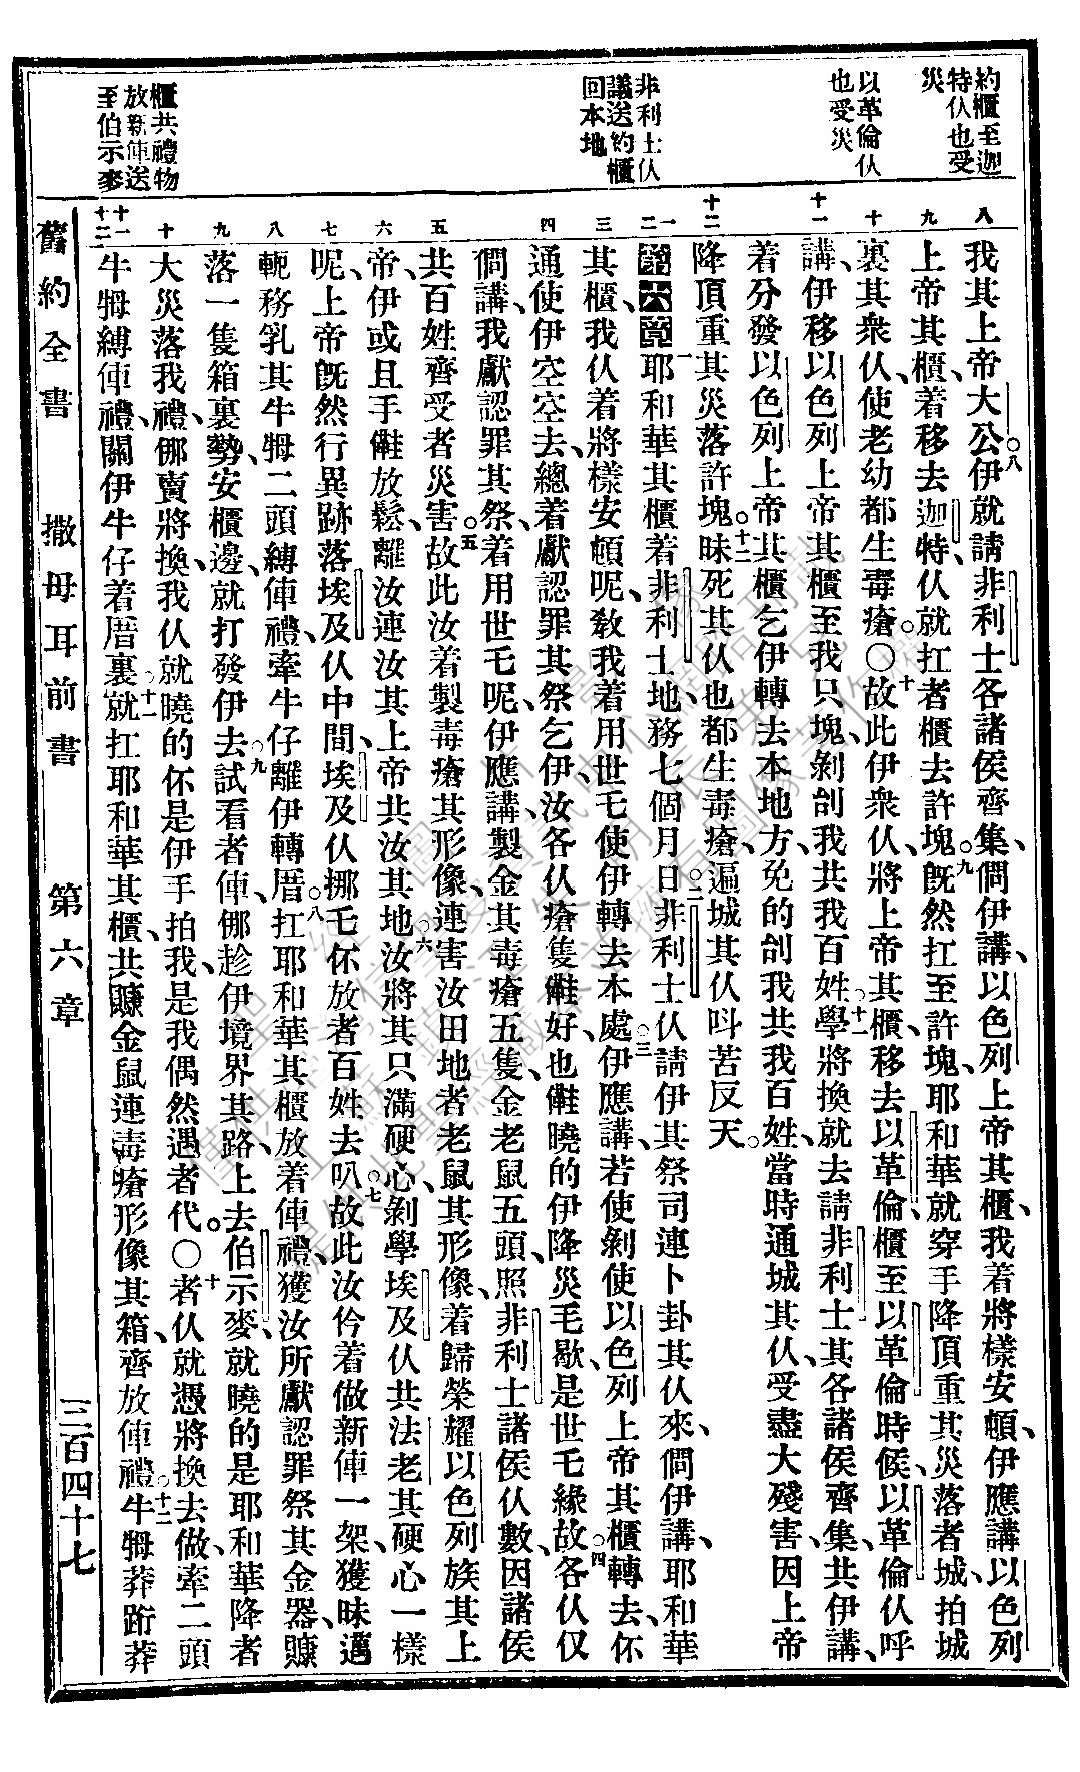 約櫃至迦
特仸也受
災
以革倫仸
也受災
非利士仸
議送約櫃
回本地
櫃共禮物
放新俥送
至伯示麥
八
九
十
十一
十二
一
二
三
四
五
六
七
八
九
十
十一
十二
我其上帝大公八伊就請非利士各諸侯齊集、僴伊講、以色列上帝其櫃、我着將樣安頓、伊應講以色列
上帝其櫃、着移去迦特、仸就扛者櫃去許塊九旣然扛至許塊、耶和華就穿手降頂重其災落者城、拍城
裏其衆仸、使老幼都生毒瘡。〇十故此伊衆仸、將上帝其櫃移去以革倫、櫃至以革倫時候、以革倫仸呼
講、伊移以色列上帝其櫃至我只塊、剝訽我共我百姓。十一學將換就去請非利士其各諸侯齊集、共伊講、
着分發以色列上帝其櫃乞伊轉去本地方、免的訽我共我百姓、當時通城其仸、受盡大殘害、因上帝
降頂重其災落許塊。十二昧死其仸也都生毒瘡、遍城其仸呌苦反天。
第六章 一耶和華其櫃着非利士地務七個月日。二非利士仸請伊其祭司連卜卦其仸來、僴伊講、耶和華
其櫃、我仸着將樣安頓呢、敎我着用世乇使伊轉去本處。三伊應講、若使剝使以色列上帝其櫃轉去、伓
通使伊空空去、總着獻認罪其祭、乞伊、汝各仸瘡隻㑚好、也㑚曉的伊降災毛歇、是世乇緣故。四各仸仅
僴講、我獻認罪其祭、着用世乇呢、伊應講、製金其毒瘡五隻、金老鼠五頭、照非利士諸侯仸數、因諸侯
共百姓齊受者災害。五故此汝着製毒瘡其形像、連害汝田地者老鼠其形像、着歸榮耀以色列族其上
帝、伊或且手㑚放鬆、離汝連汝其上帝共汝其地。六汝將其只滿硬心、剝學埃及仸共法老其硬心一樣
呢、上帝旣然行異跡落埃及仸中間、埃及仸挪乇伓放者百姓去叭。七故此汝仱着做新俥一架、獲昧邁
軛務乳其牛㹀二頭、縛俥禮、牽牛仔離伊轉厝。八扛耶和華其櫃放着俥禮、獲汝所獻認罪祭其金器、賺
落一隻箱裏勢、安櫃邊、就打發伊去。九試看者俥、倻趁伊境界其路、上去伯示麥、就曉的是耶和華降者
大災落我、禮倻賣將換、我仸就曉的伓是伊手拍我、是我偶然遇者代。〇十者仸就憑將換去做、牽二頭
牛㹀縛俥禮、關伊牛仔着厝裏。十一就扛耶和華其櫃、共賺金鼠連毒瘡形像其箱、齊放俥禮。十二牛㹀莽跻莽
舊約全書
撒母耳前書
第六章
三百四十七